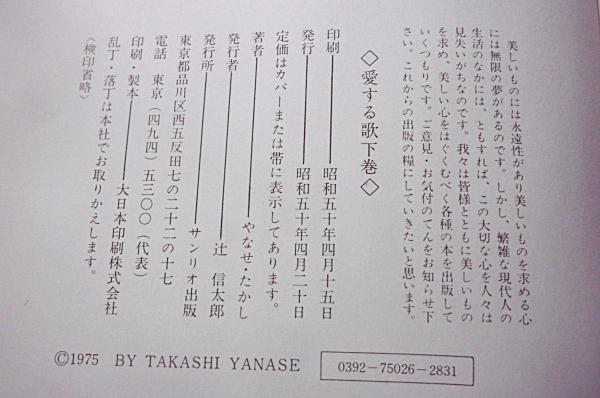 美しいものには永遠性があり美しいものを求める心
には無限の夢があるのです。しかし、繁雑な現代人の
生活のなかには、ともすれば、この大切な心を人々は
見失いがちなのです。我々は皆様とともに美しいもの
を求め、美しい心をはぐくむべく各種の本を出版して
いくつもりです。ご意見・お気付のてんをお知らせ下
さい。これからの出版の糧にしていきたいと思います。
◇愛する歌下巻◇
印刷――昭和五十年四月十五日
発行――昭和五十年四月二十日
定価はカバーまたは帯に表示してあります。
著者――やなせ・たかし
発行者――辻 信太郎
発行所――サンリオ出版
東京都品川区西五反田七の二十二の十七
電話 東京(四九四)五三〇〇(代表)
印刷・製本――大日本印刷株式会社
乱丁・落丁は本社でお取りかえします。
〈検印省略〉
©1975 BY TAKASHI YANASE
0392-75026-2831